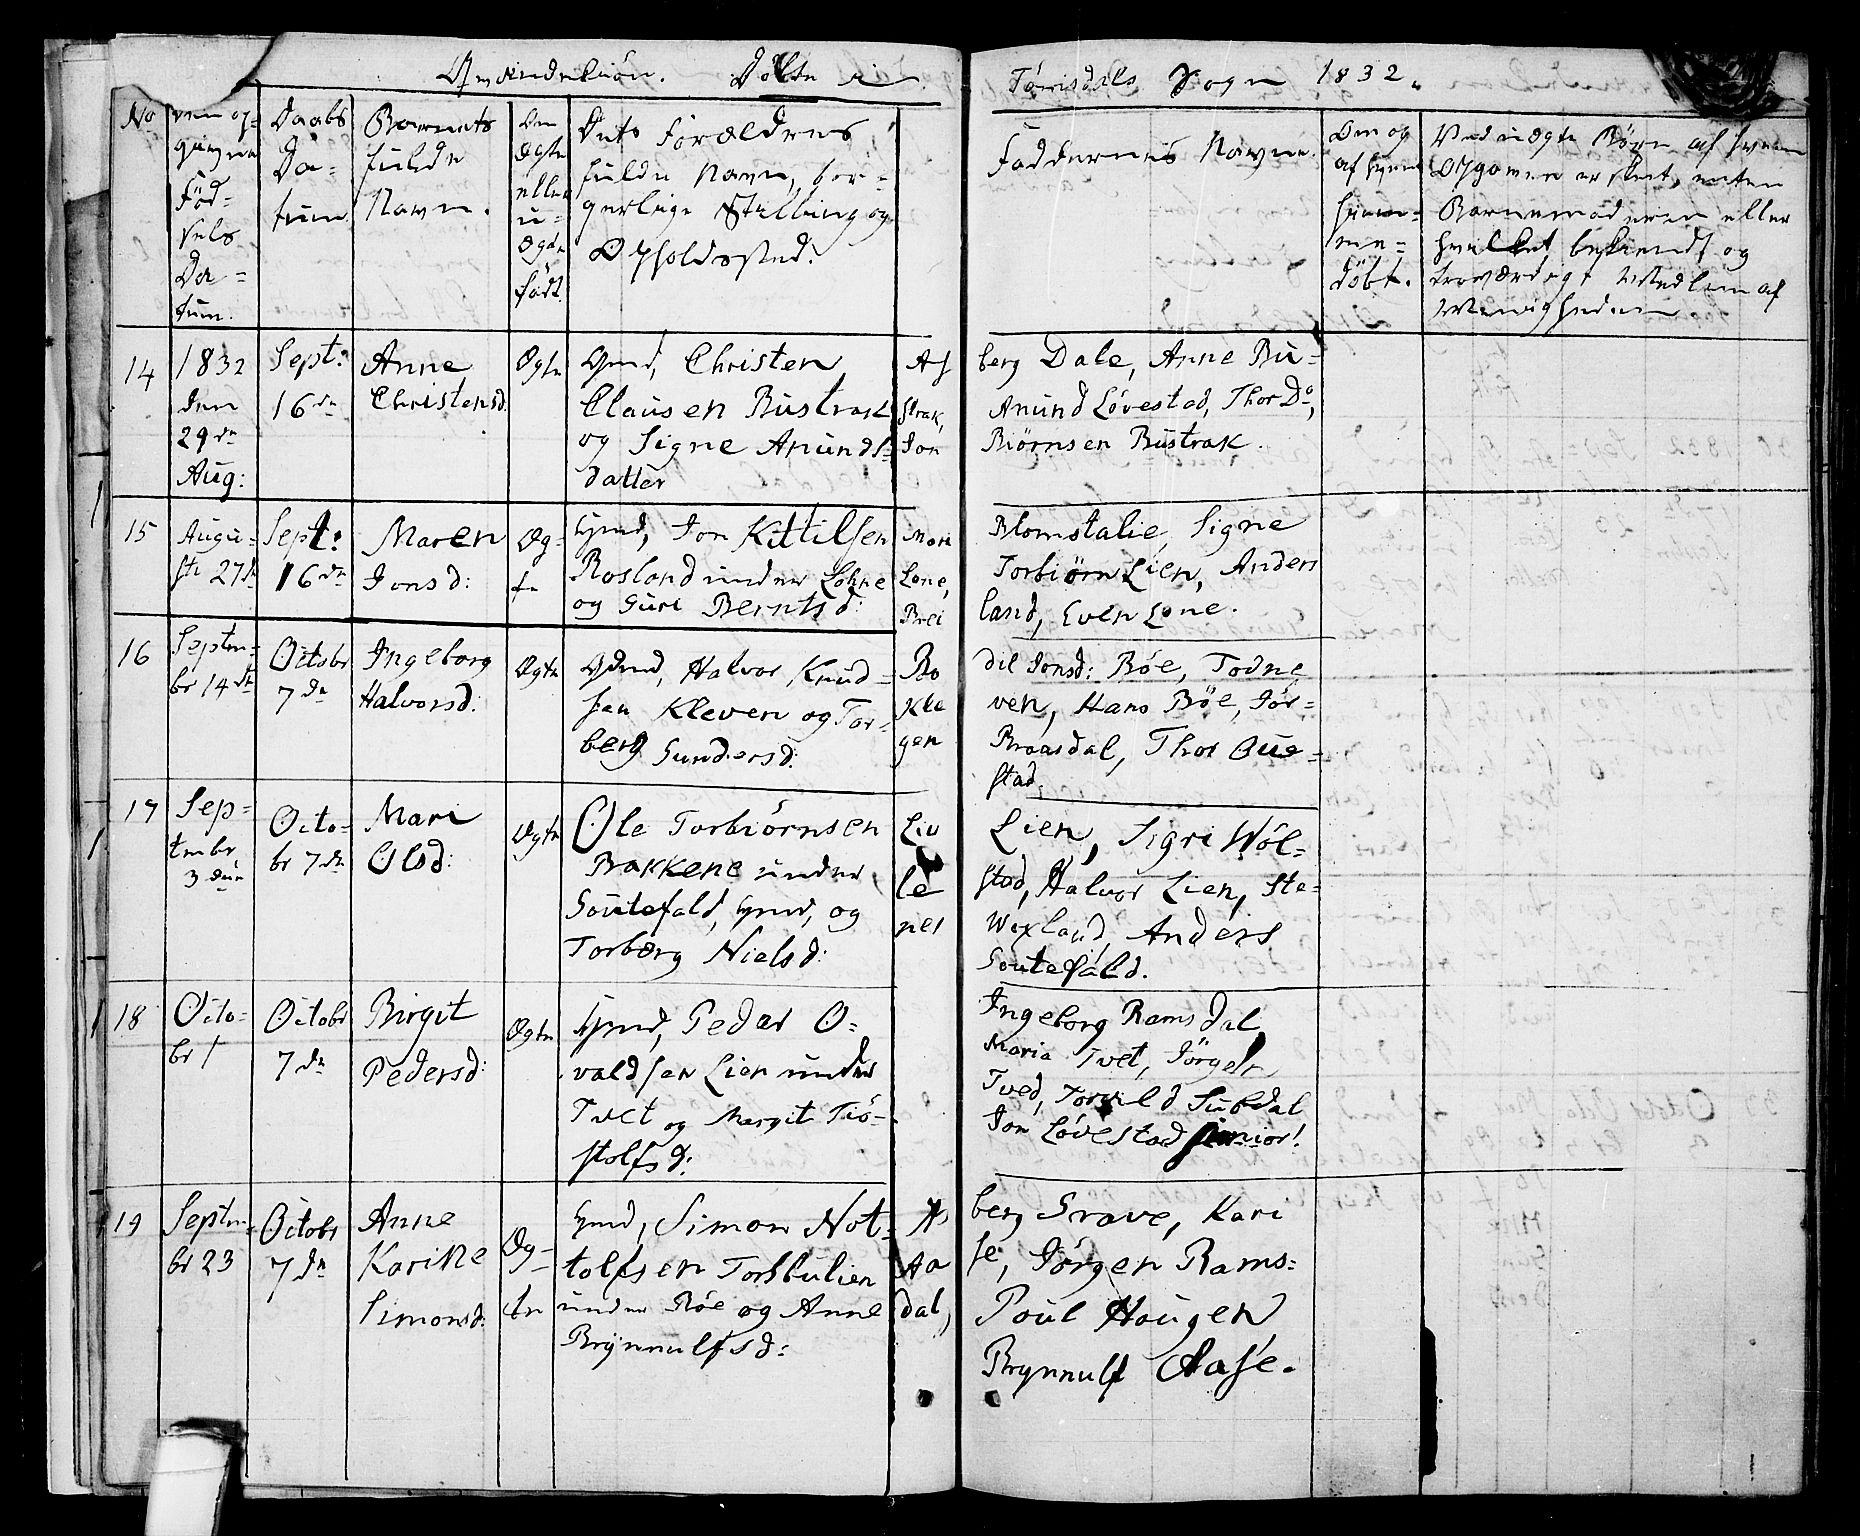 Qvindekiön. Döbte i Tørrisdals Sogn 1832.
No
Den op-
givne
Fød-
sels
Da-
tum.
Daabs
Da-
tum.
Barnets
fulde
Navn.
Om
Ægte
eller
u-
ægte
født.
Dets Forældres
fulde Navn, bor-
gerlige Stilling og
Opholdssted.
Faddernes Navne.
Om og
af hvem
hiem-
me-
döbt.
Ved uægte Börn af hvem
Opgaven er skeet, enten
Barnemoderen eller
hvilket bekiendt og
troværdigt Medlem af
Menigheden
14
1832
den
29de
Aug:
Sept:
16de
Anne
Christensd.
Ægte
Gmd, Christen
Clausen Bustrak
og Signe Anunds-
datter
As berg Dale, Anne Bu-
strak, Anund Løvestad, Thor Do,
Jon Biörnsen Bustrak.
15
Augu-
sti 27de
Sept:
16de
Maren
Jonsd:
Æg-
te
Gmd, Jon Kittilsen
Rosland under Lohne
og Guri Berntsd:
Mari Blomstalie, Signe
Lone, Torbiörn Lien, Anders
Brei land, Even Lone.
16
Septem-
br 14de
Octobr
7de
Ingeborg
Halvorsd:
Ægte
Gmd, Halvor Knud-
sen Kleven og Tor-
berg Gundersd:
Bo dil Jonsd: Böe, Todne
Kle ven, Hans Böe, Jör-
gen Braasdal, Thor Oue-
stad.
17
Sep-
tembr
3die
Octo-
br 7de
Mari
Olsd:
Ægte
Ole Torbiörnsen
Bakkene under
Goutefald, Gmd, og
Torberg Nielsd:
Liv Lien, Sigri Wöl-
le stad, Halvor Lien, Ste-
ner Wexland, Anders
Goutefald.
18
Octo-
br 1
Octobr
7de
Birgit
Pedersd:
Ægte
Gmd, Peder O-
valdsen Lien under
Tvet og Margit Tiö-
stolfsd:
Ingeborg Ramsdal,
Maria Tvet, Jörgen
Tved, Torvild Subdal
Jon Løvestad junior!
19
Septem-
br 23
Octobr
7de
Anne
Karine
Simonsd:
Æg-
te
Gmd, Simon Not-
tolfsen Torsbulien
under Böe og Anne
Brynnulfsd:
As berg Grave, Kari
Aa se, Jörgen Rams-
dal, Poul Haugen
Brynnulf Aase.